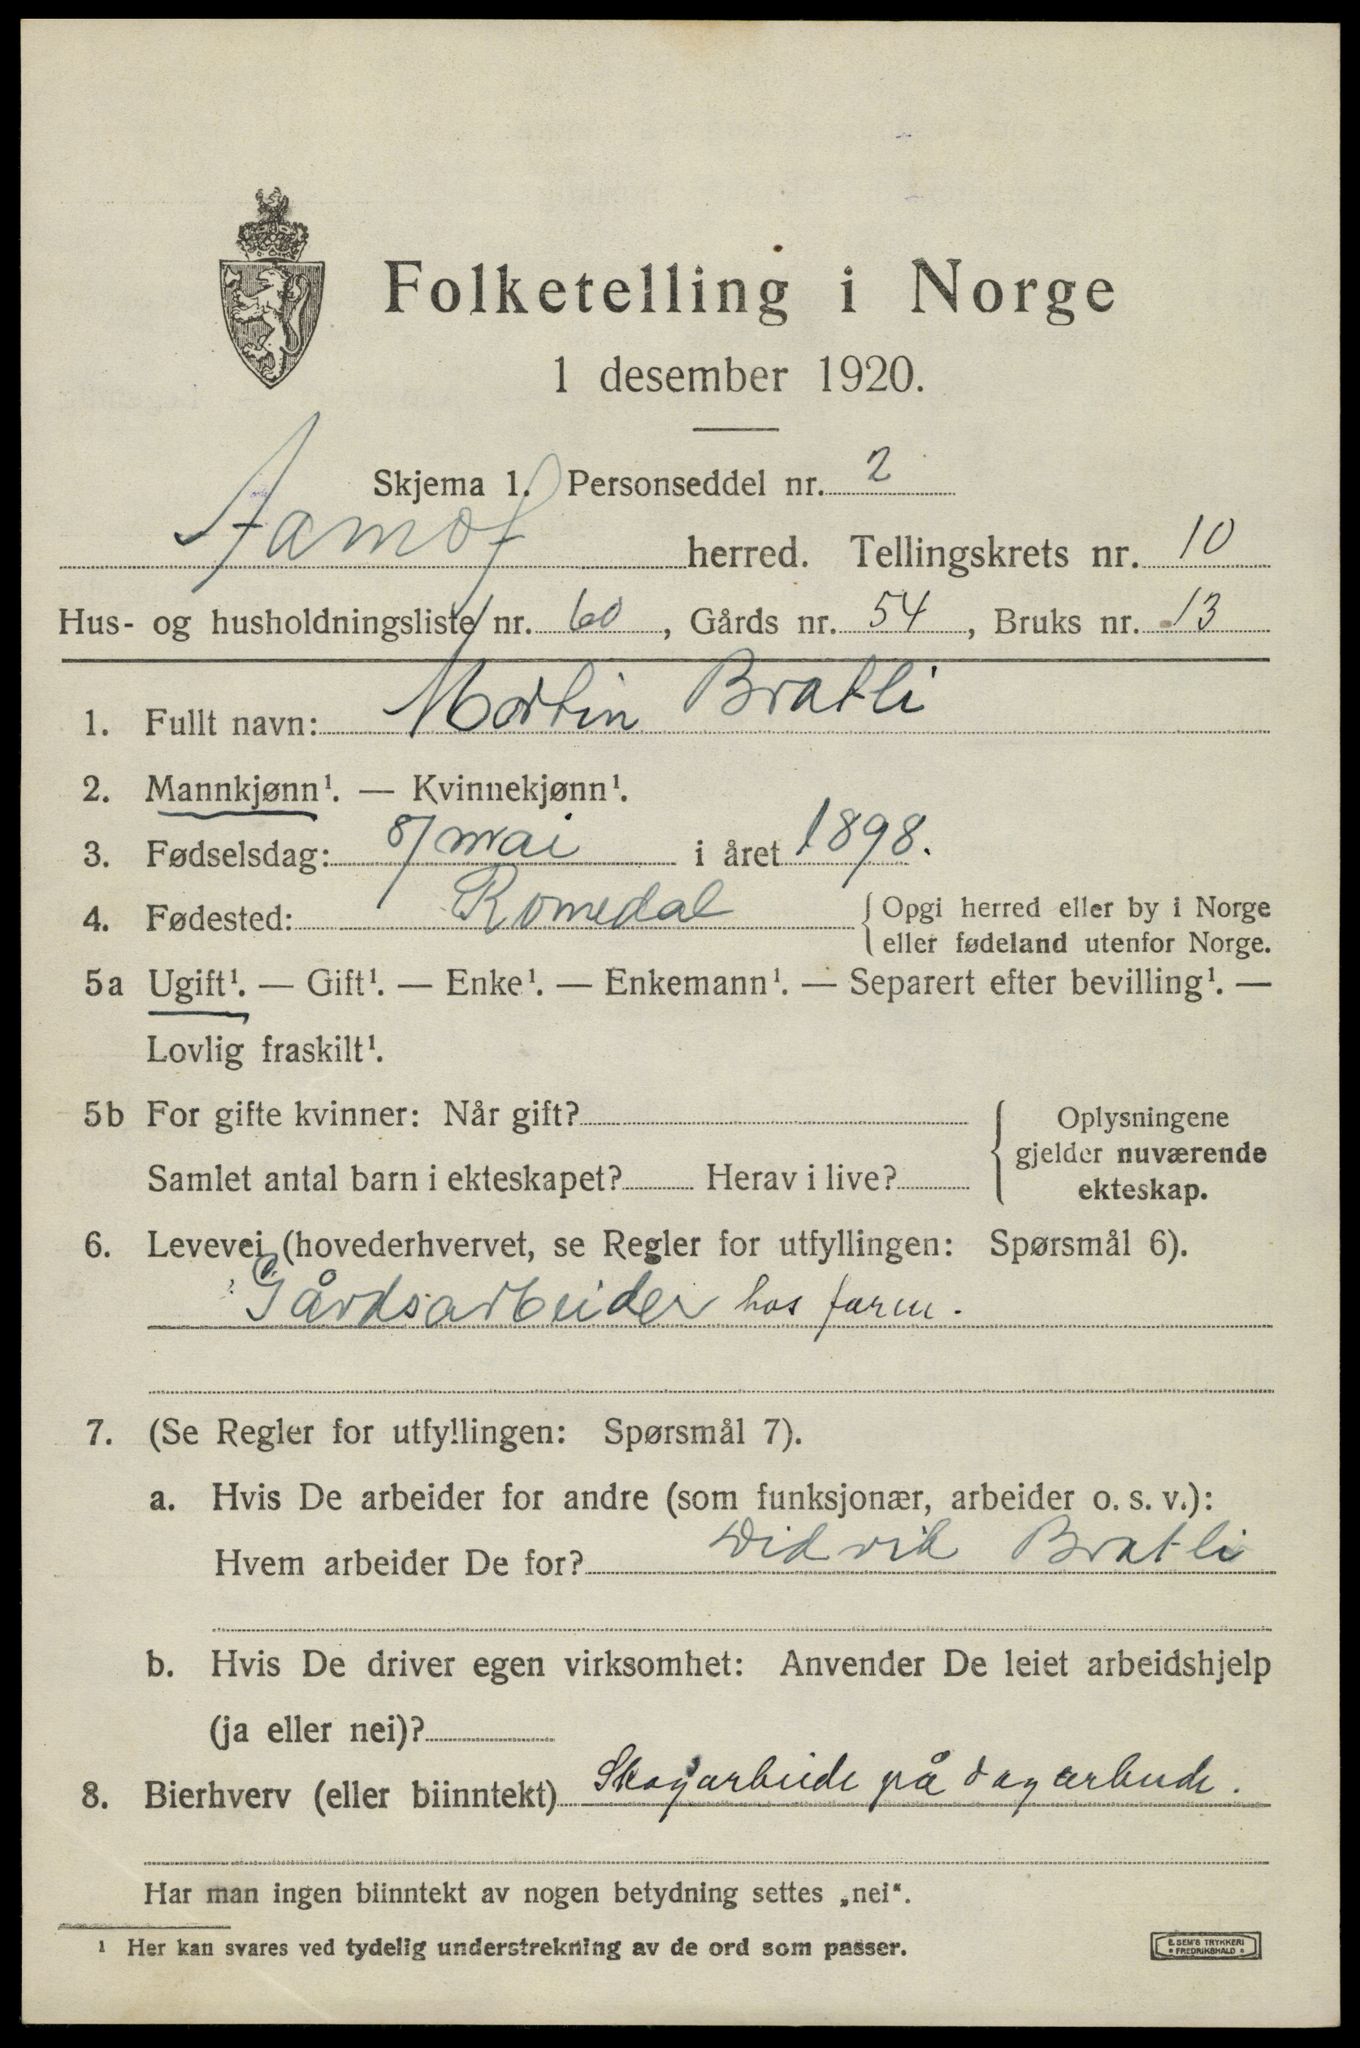 Folketelling i Norge
1 desember 1920.
Skjema 1. Personseddel nr. 2
Aamot herred. Tellingskrets nr. 10
Hus- og husholdningsliste nr. 60, Gårds nr. 54, Bruks nr. 13
1. Fullt navn: Martin Bratli
2. Mannkjønn¹. — Kvinnekjønn¹.
3. Fødselsdag: 8/ mai i året 1898.
4. Fødested: Romedal {Opgi herred eller by i Norge
eller fødeland utenfor Norge.
5a Ugift¹. — Gift¹. — Enke¹. — Enkemann¹. — Separert efter bevilling¹. —
Lovlig fraskilt¹.
5b For gifte kvinner: Når gift?
Samlet antal barn i ekteskapet? Herav i live?
{Oplysningene
gjelder nuværende
ekteskap.
6. Levevei (hovederhvervet, se Regler for utfyllingen: Spørsmål 6).
Gårdsarbeider hos faren.
7. (Se Regler for utfyllingen: Spørsmål 7).
a. Hvis De arbeider for andre (som funksjonær, arbeider o. s. v.):
Hvem arbeider De for? Didrik Bratli
b. Hvis De driver egen virksomhet: Anvender De leiet arbeidshjelp
(ja eller nei)?
8. Bierhverv (eller biinntekt) Skogarbeide på dagarbeide.
Har man ingen biinntekt av nogen betydning settes „nei“.
¹ Her kan svares ved tydelig understrekning av de ord som passer.
E. SEM'S TRYKKERI
FREDRIKSHALD